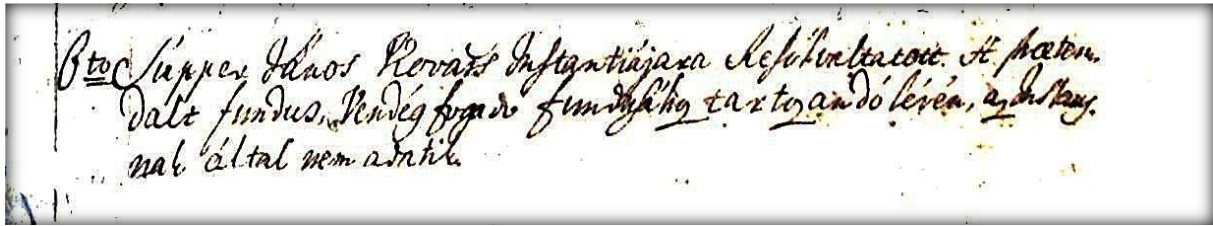 6to Supper János Kovats Instantiájara Resolváltatott. A praeten-
dált fundus, Vendég fogado fundusához tartozandó lévén, az Instans-
nak által nem adatik.